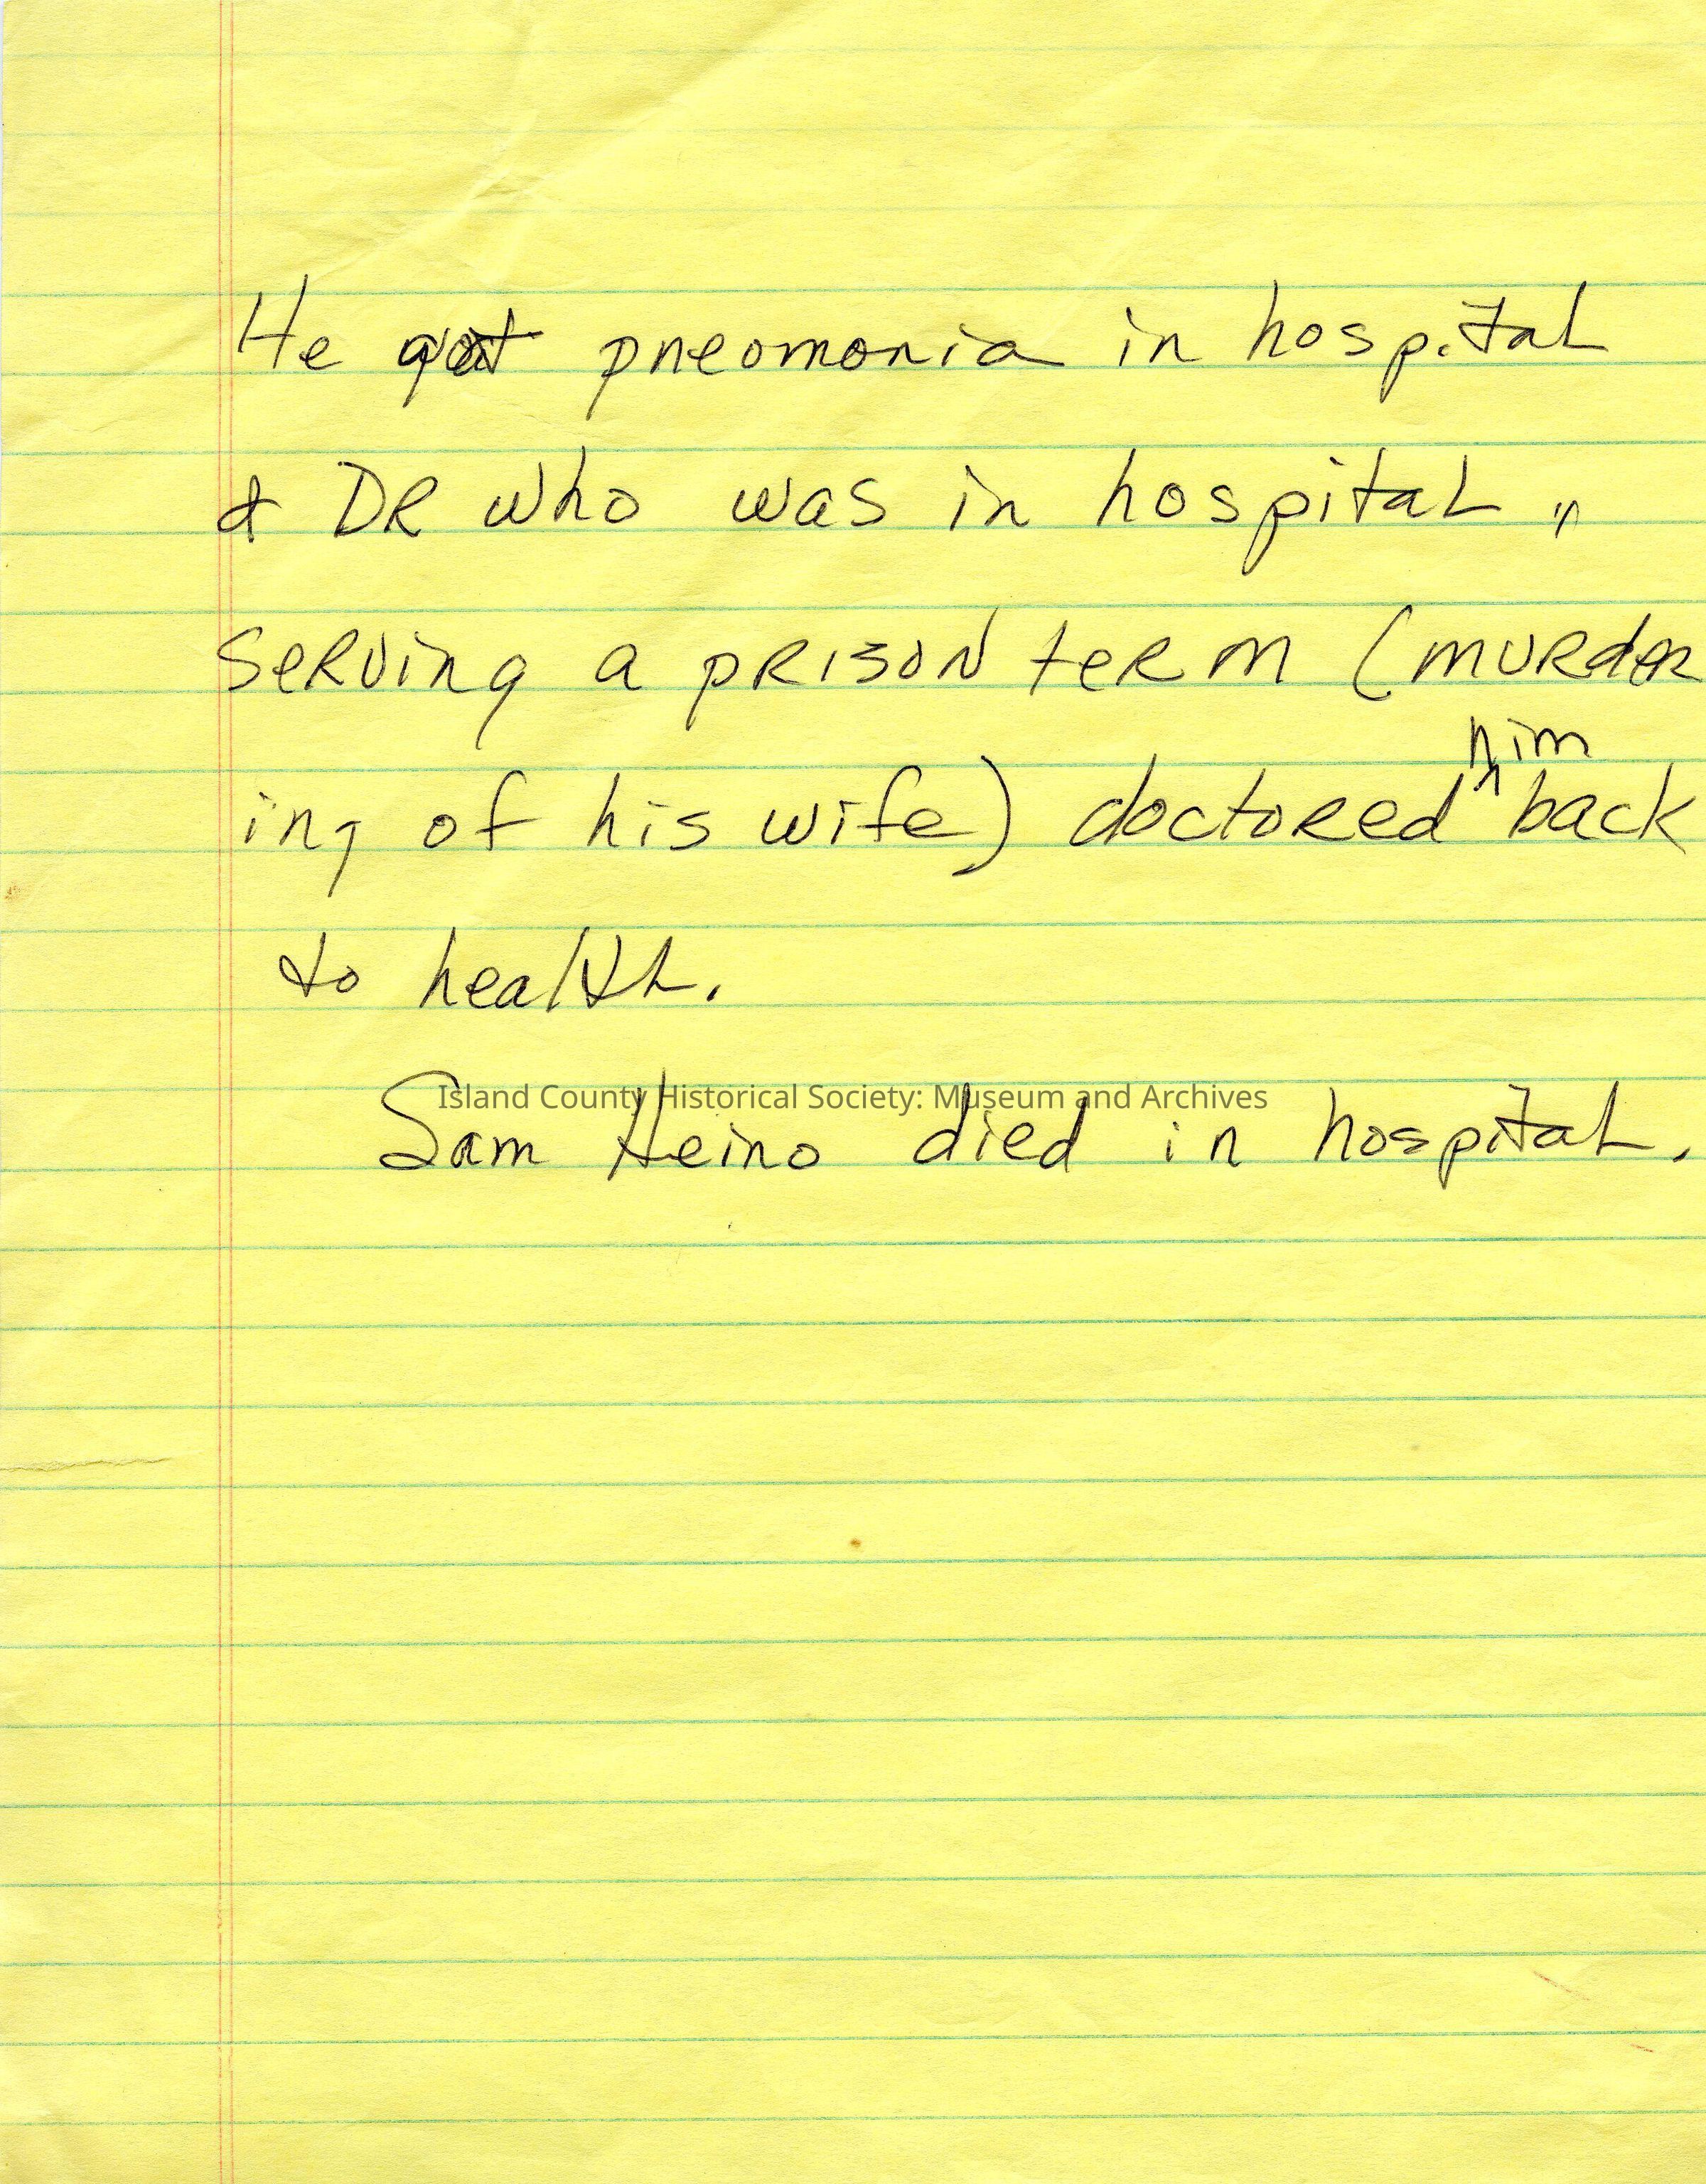 He got pneomonia in hospital
& DR who was in hospital "
serving a prison term (murder
ing of his wife) doctored ^him back
to health.
Island County Historical Society: Museum and Archives
Sam Heino died in hospital.